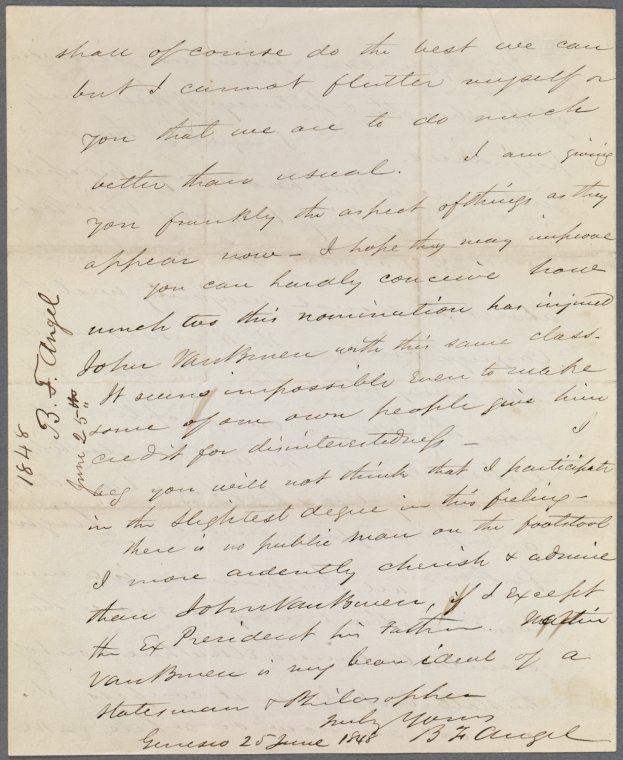 shall of course do the best we can
but I cannot flatter myself or
you that we are to do much
better than usual. I am giving
you frankly the aspect of things as they
appear now – I hope they may improve
You can hardly conceive how
much too this nomination has injured
John Van Buren with this same class.
It seems impossible even to make
some of our own people give him
credit for disinterestedness – I
beg you will not think that I participate
in the slightest degree in this feeling –
There is no public man on the footstool
I more ardently cherish & admire
than John Van Buren, if I except
the Ex President his Father. Martin
Van Buren is my beau ideal of a
Statesman & Philosopher
Truly Yours
Geneseo 25 June 1848 B F Angel
1848
B. F. Angel
June 25th